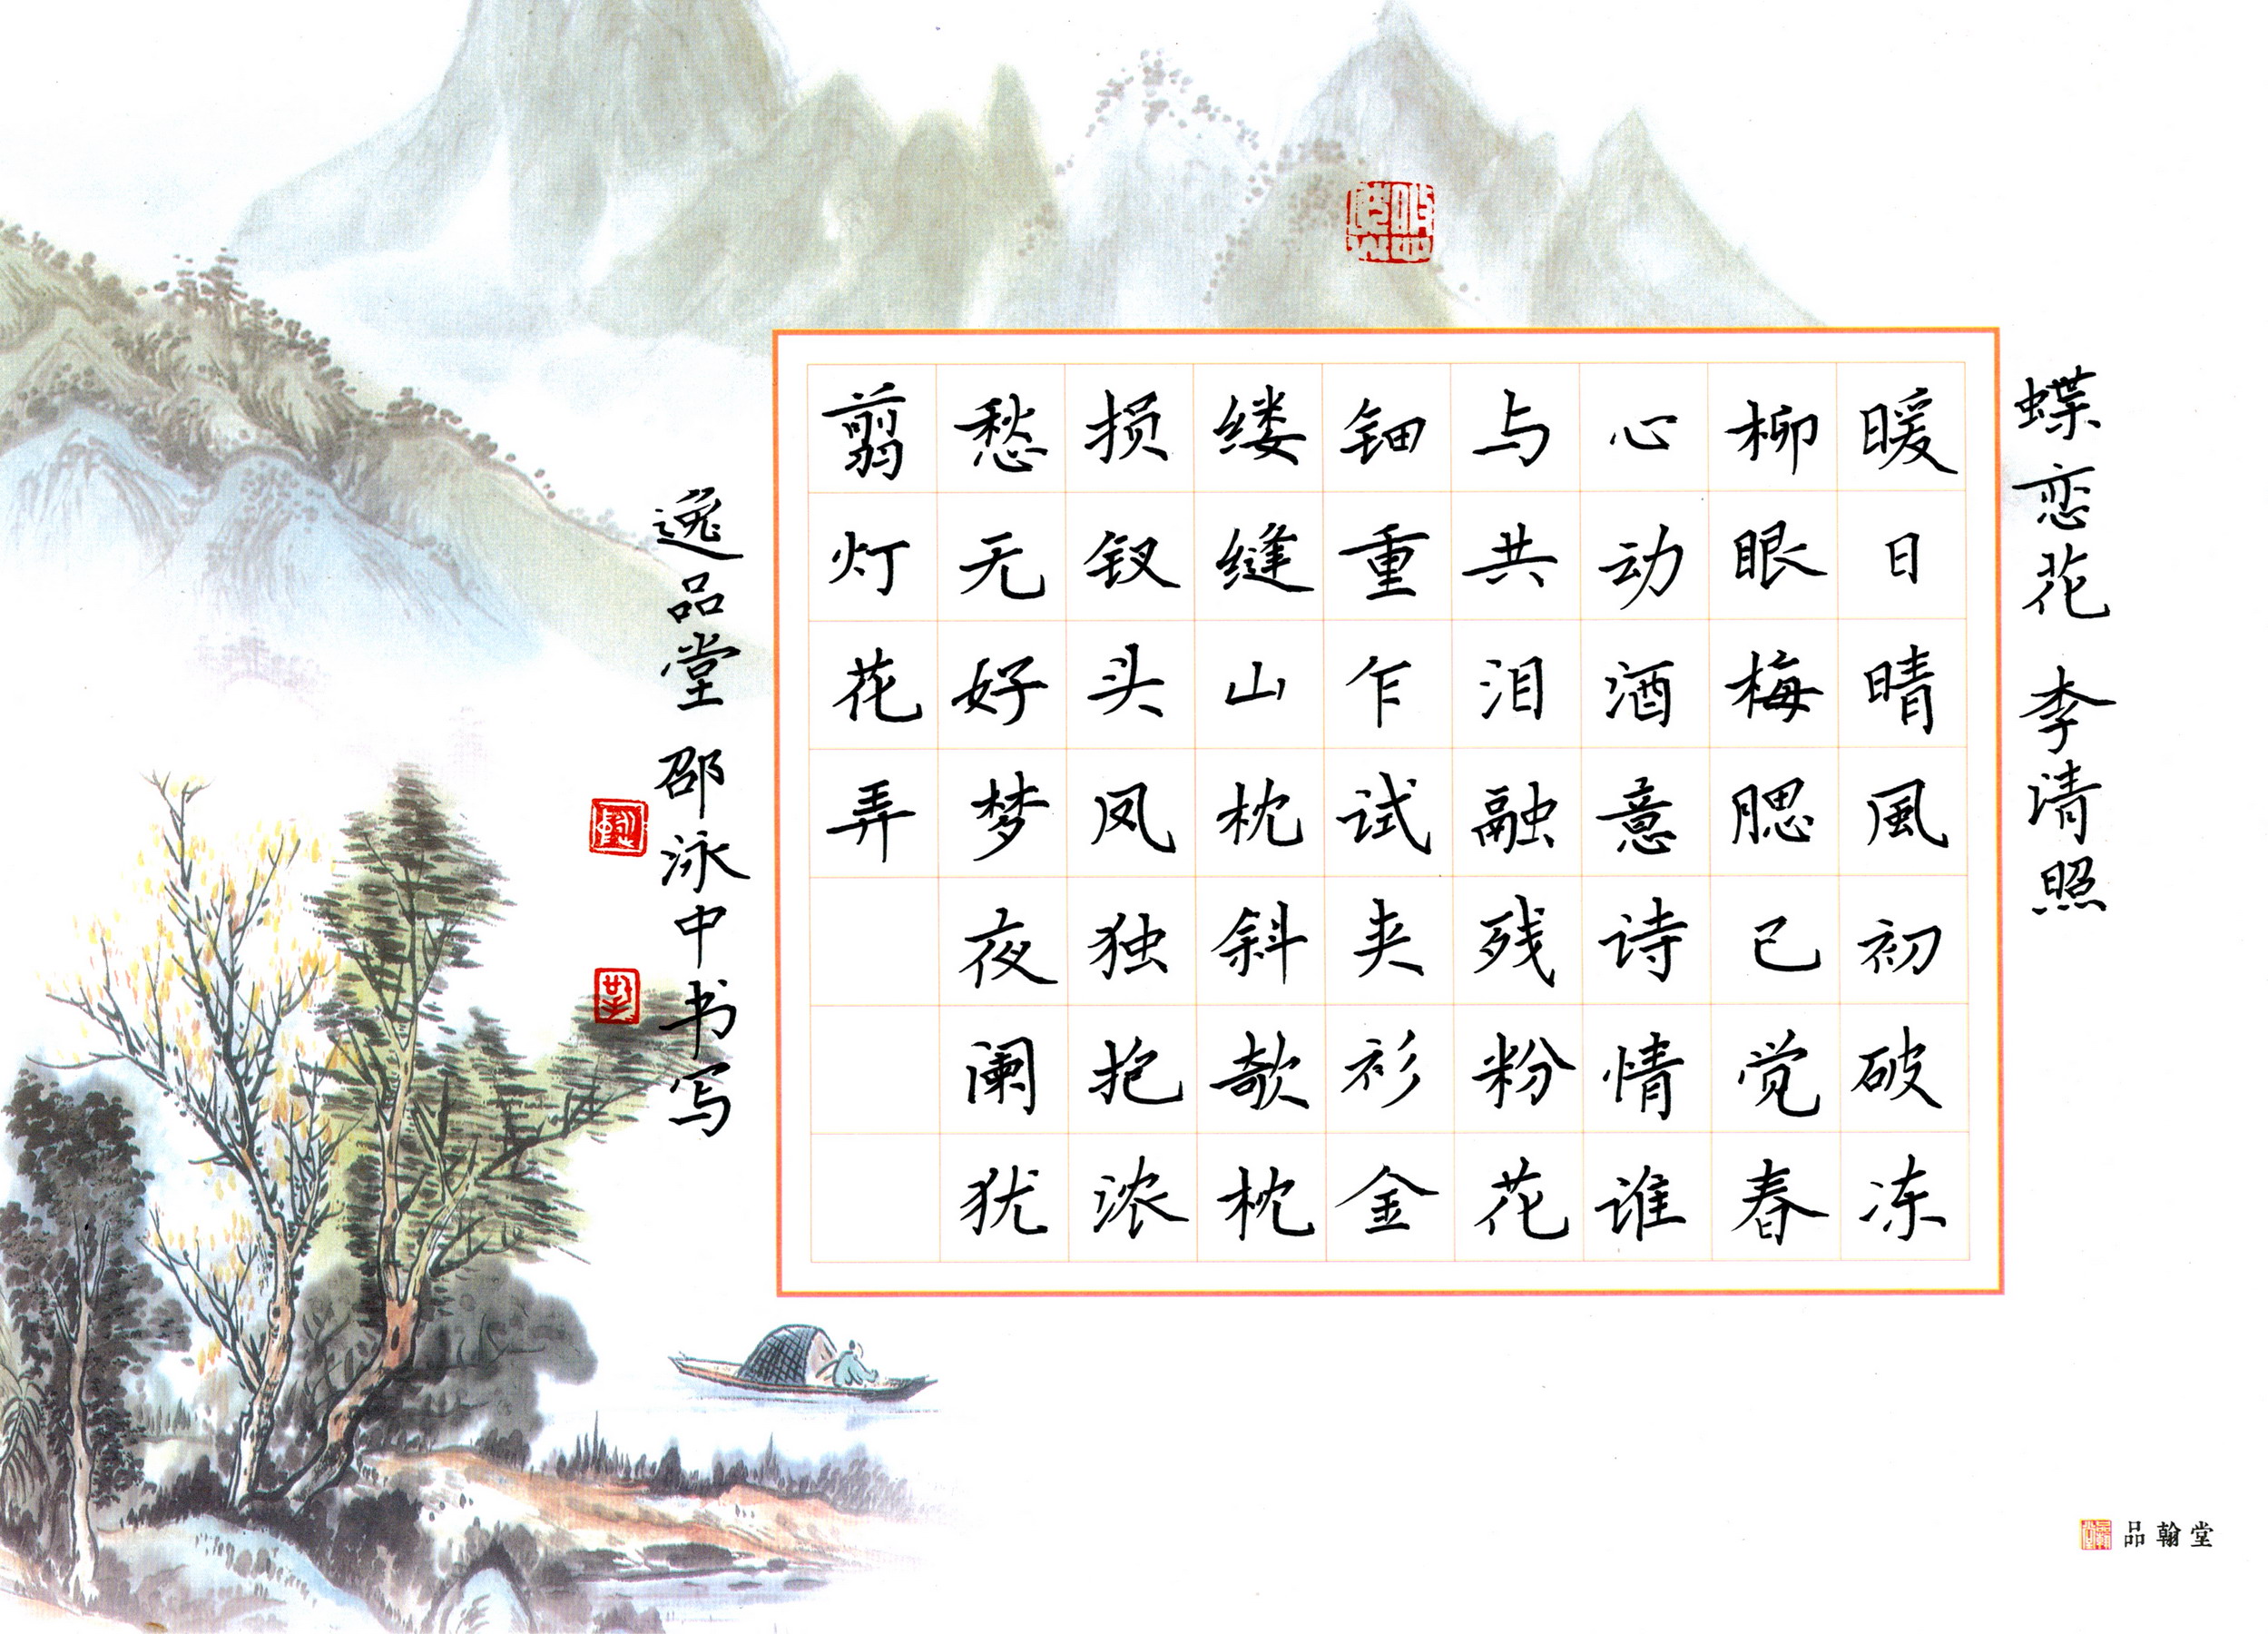 蝶恋花 李清照
暖日晴風初破冻
柳眼梅腮已觉春
心动酒意诗情谁
与共泪融残粉花
钿重乍试夹衫金
缕缝山枕斜欹枕
损钗头凤独抱浓
愁无好梦夜阑犹
翦灯花弄
逸品堂 邵泳中书写
品翰堂